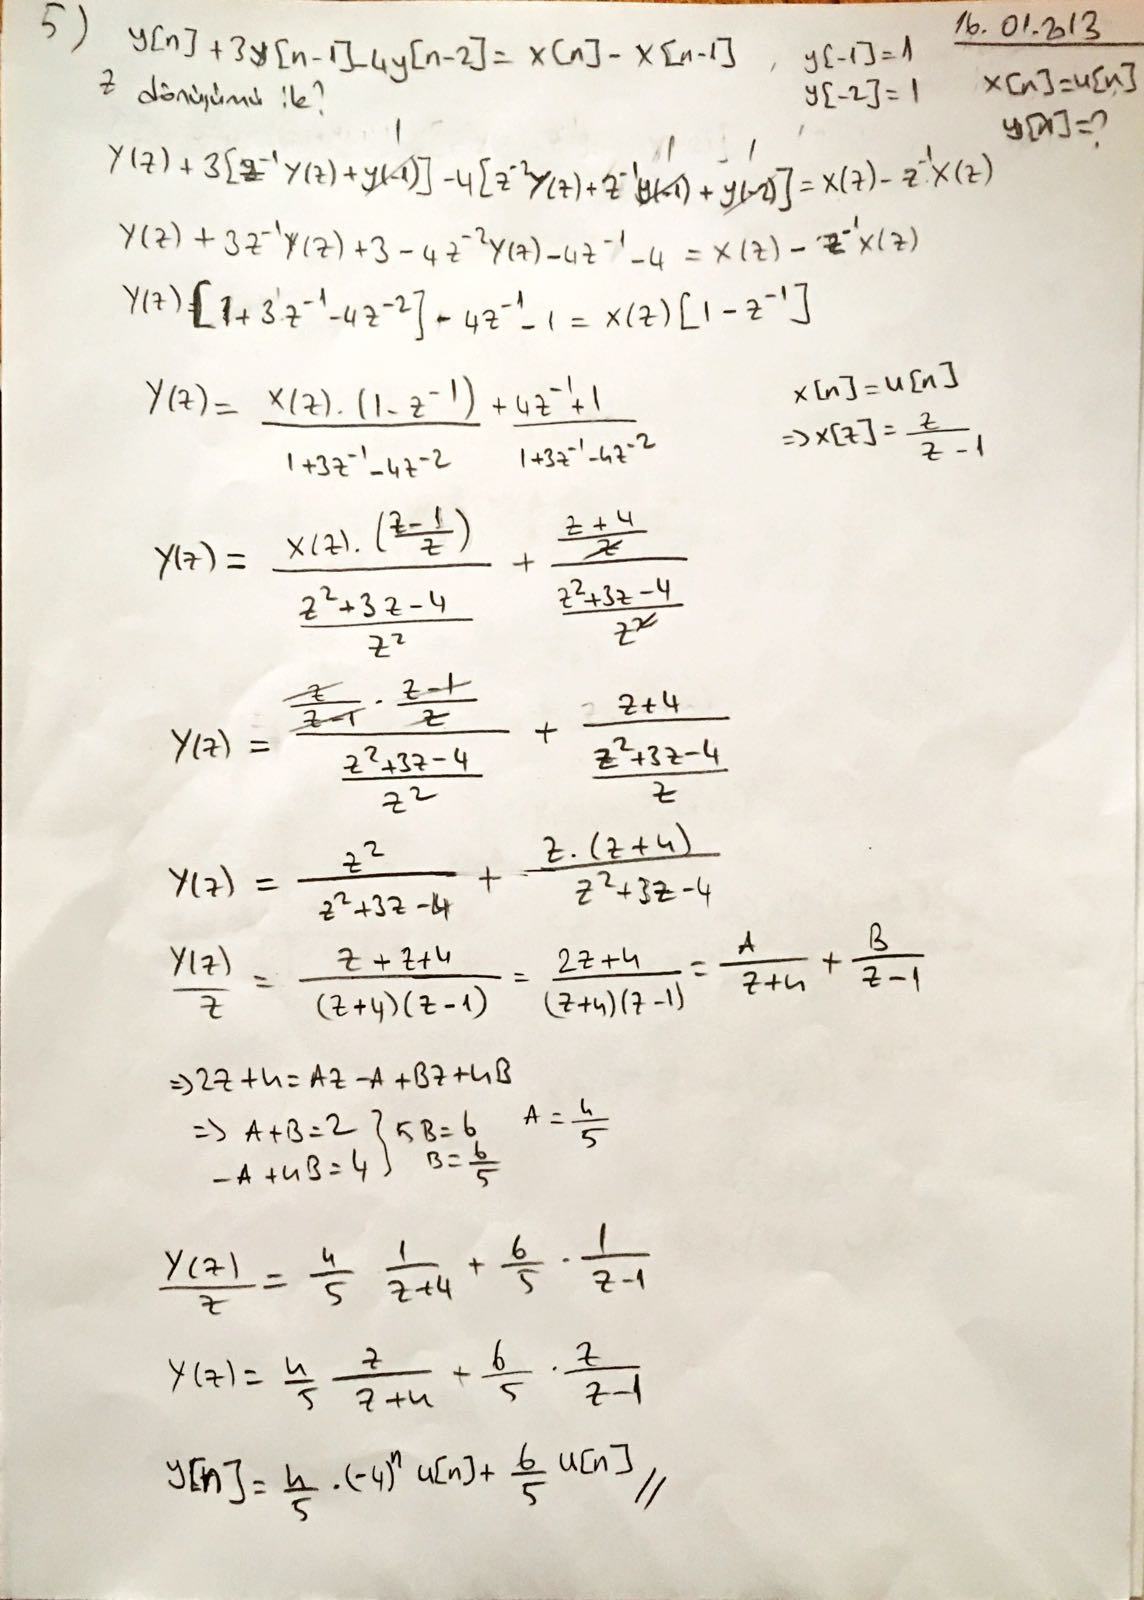 5)
16.01.2013
y[n] + 3y[n-1] - 4y[n-2] = x[n] - x[n-1] , y[-1]=1
z dönüşümü ile? y[-2]=1 x[n]=u[n]
y[n]=?
1 1 1
Y(z) + 3[z⁻¹Y(z) + y(-1)] - 4[z⁻²Y(z) + z⁻¹y(-1) + y(-2)] = X(z) - z⁻¹X(z)
Y(z) + 3z⁻¹Y(z) + 3 - 4z⁻²Y(z) - 4z⁻¹ - 4 = X(z) - z⁻¹X(z)
Y(z) [1 + 3z⁻¹ - 4z⁻²] - 4z⁻¹ - 1 = X(z) [1 - z⁻¹]
Y(z) = X(z).(1-z⁻¹) / (1+3z⁻¹-4z⁻²) + (4z⁻¹+1) / (1+3z⁻¹-4z⁻²)
x[n] = u[n]
=> X[z] = z / (z-1)
Y(z) = X(z).((z-1)/z) / ((z²+3z-4)/z²) + ((z+4)/z) / ((z²+3z-4)/z²)
Y(z) = (z/(z-1) . (z-1)/z) / ((z²+3z-4)/z²) + (z+4) / ((z²+3z-4)/z)
Y(z) = z² / (z²+3z-4) + z.(z+4) / (z²+3z-4)
Y(z)/z = (z+z+4) / ((z+4)(z-1)) = (2z+4) / ((z+4)(z-1)) = A/(z+4) + B/(z-1)
=> 2z+4 = Az - A + Bz + 4B
=> A+B=2 } 5B=6 A = 4/5
-A+4B=4 } B = 6/5
Y(z)/z = 4/5 1/(z+4) + 6/5 . 1/(z-1)
Y(z) = 4/5 z/(z+4) + 6/5 . z/(z-1)
y[n] = 4/5 .(-4)ⁿ u[n] + 6/5 u[n] //